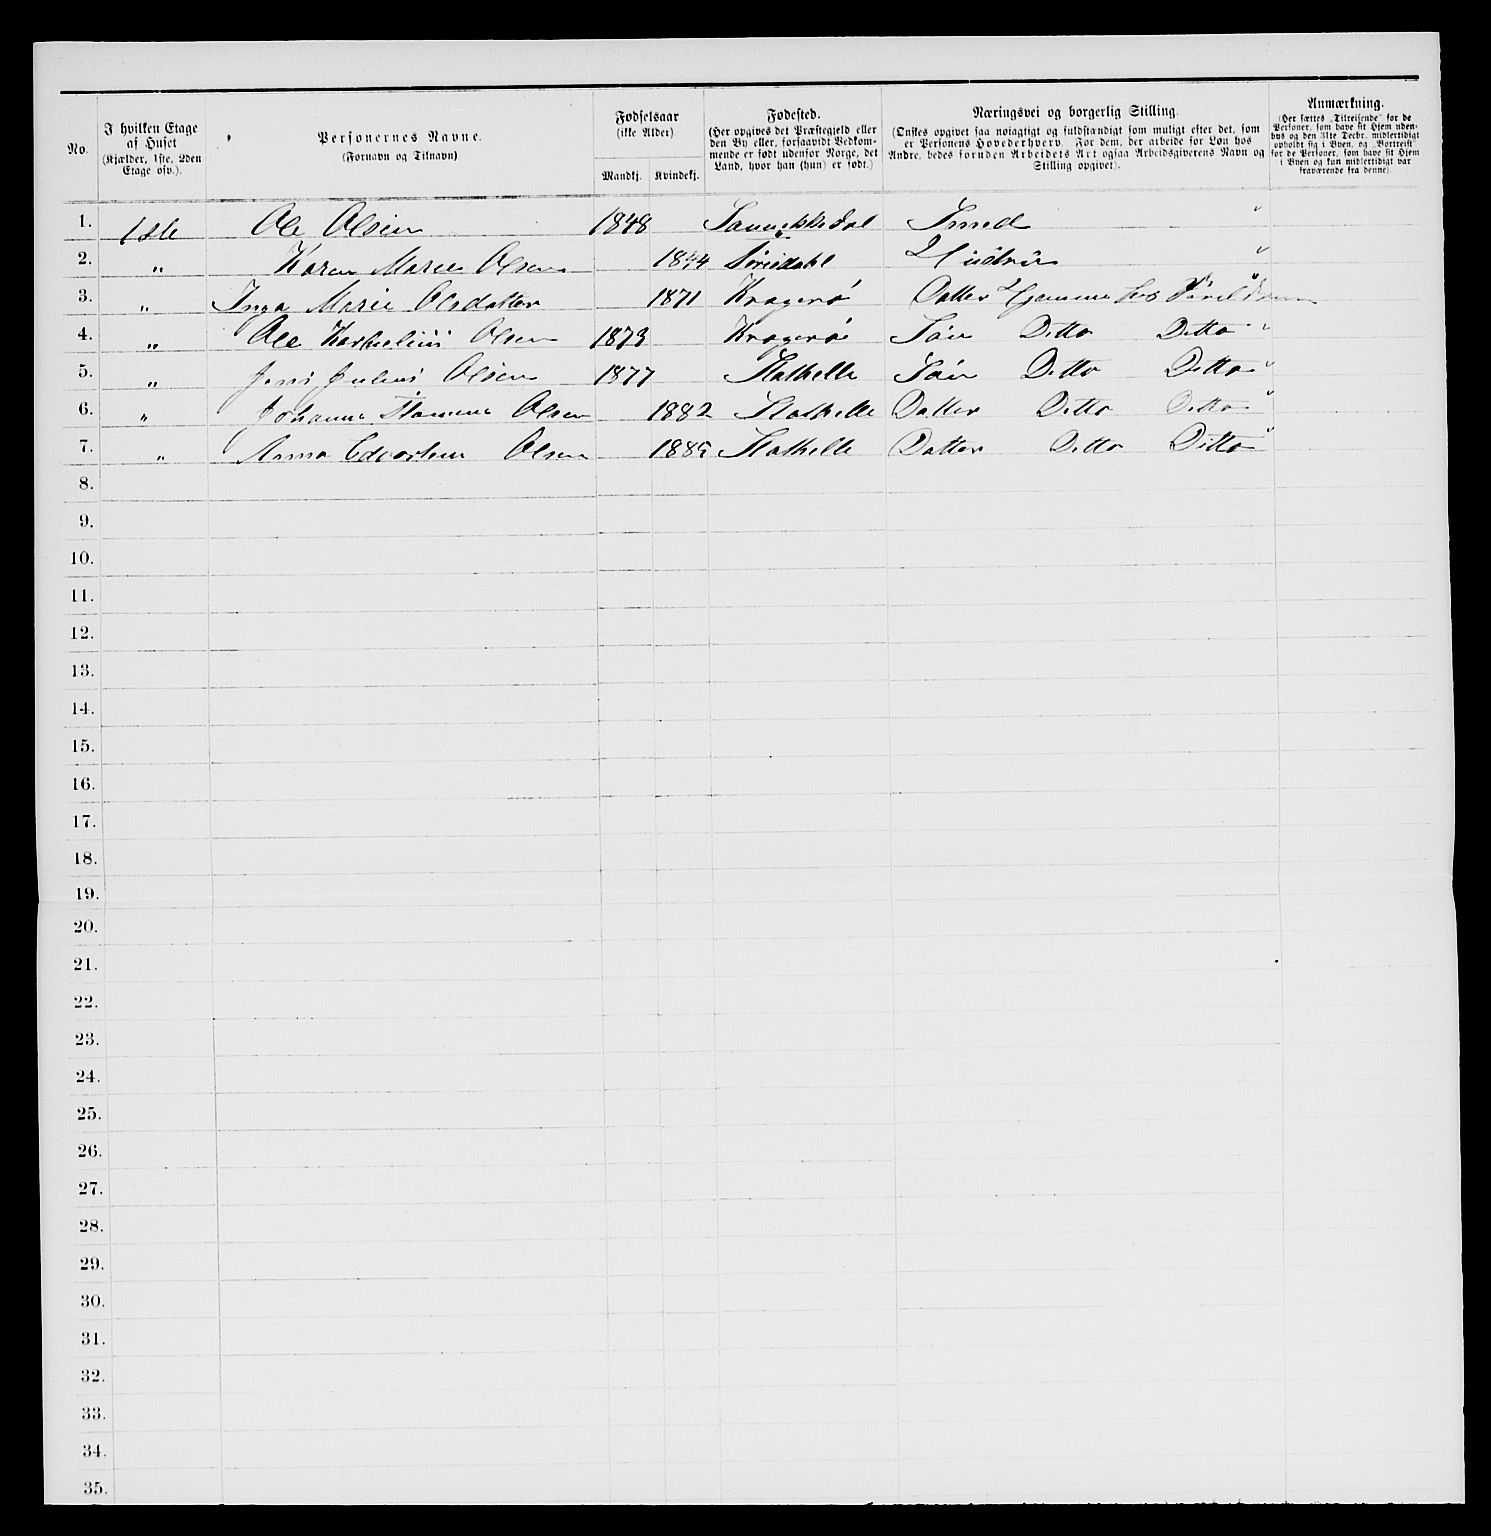 No.
I hvilken Etage
af Huset
(Kjælder, 1ste, 2den
Etage osv.).
Personernes Navne.
(Fornavn og Tilnavn)
Fødselsaar
(ikke Alder)
Mandkj. Kvindekj.
Fødested.
(Her opgives det Præstegjeld eller
den By eller, forsaavidt Vedkom-
mende er født udenfor Norge, det
Land, hvor han (hun) er født.)
Næringsvei og borgerlig Stilling.
(Ønskes opgivet saa nøiagtigt og fuldstændigt som muligt efter det, som
er Personens Hovederhverv. For dem, der arbeide for Løn hos
Andre, bedes foruden Arbeidets Art ogsaa Arbeidsgiverens Navn og
Stilling opgivet).
Anmærkning.
(Her sættes „Tilreisende" for de
Personer, som have sit Hjem uden-
bys og den 31te Decbr. midlertidigt
opholdt sig i Byen, og „Bortreist"
for de Personer, som have sit Hjem
i Byen og kun midlertidigt var
fraværende fra denne).
1. 1ste Ole Olsen 1848 Sannikkedal Smed "
2. " Karen Marie Olsen 1844 Hustru "
3. " Inga Marie Olsdatter 1871 Kragerø Datter Hjemme hos "
4. " Ole Olsen 1873 Kragerø Søn Ditto Ditto "
5. " Jens Julius Olsen 1877 Stathelle Søn Ditto Ditto "
6. " Johanne Olsen 1882 Stathelle Datter Ditto Ditto "
7. " Anna Olsen 1885 Stathelle Datter Ditto Ditto "
8.
9.
10.
11.
12.
13.
14.
15.
16.
17.
18.
19.
20.
21.
22.
23.
24.
25.
26.
27.
28.
29.
30.
31.
32.
33.
34.
35.